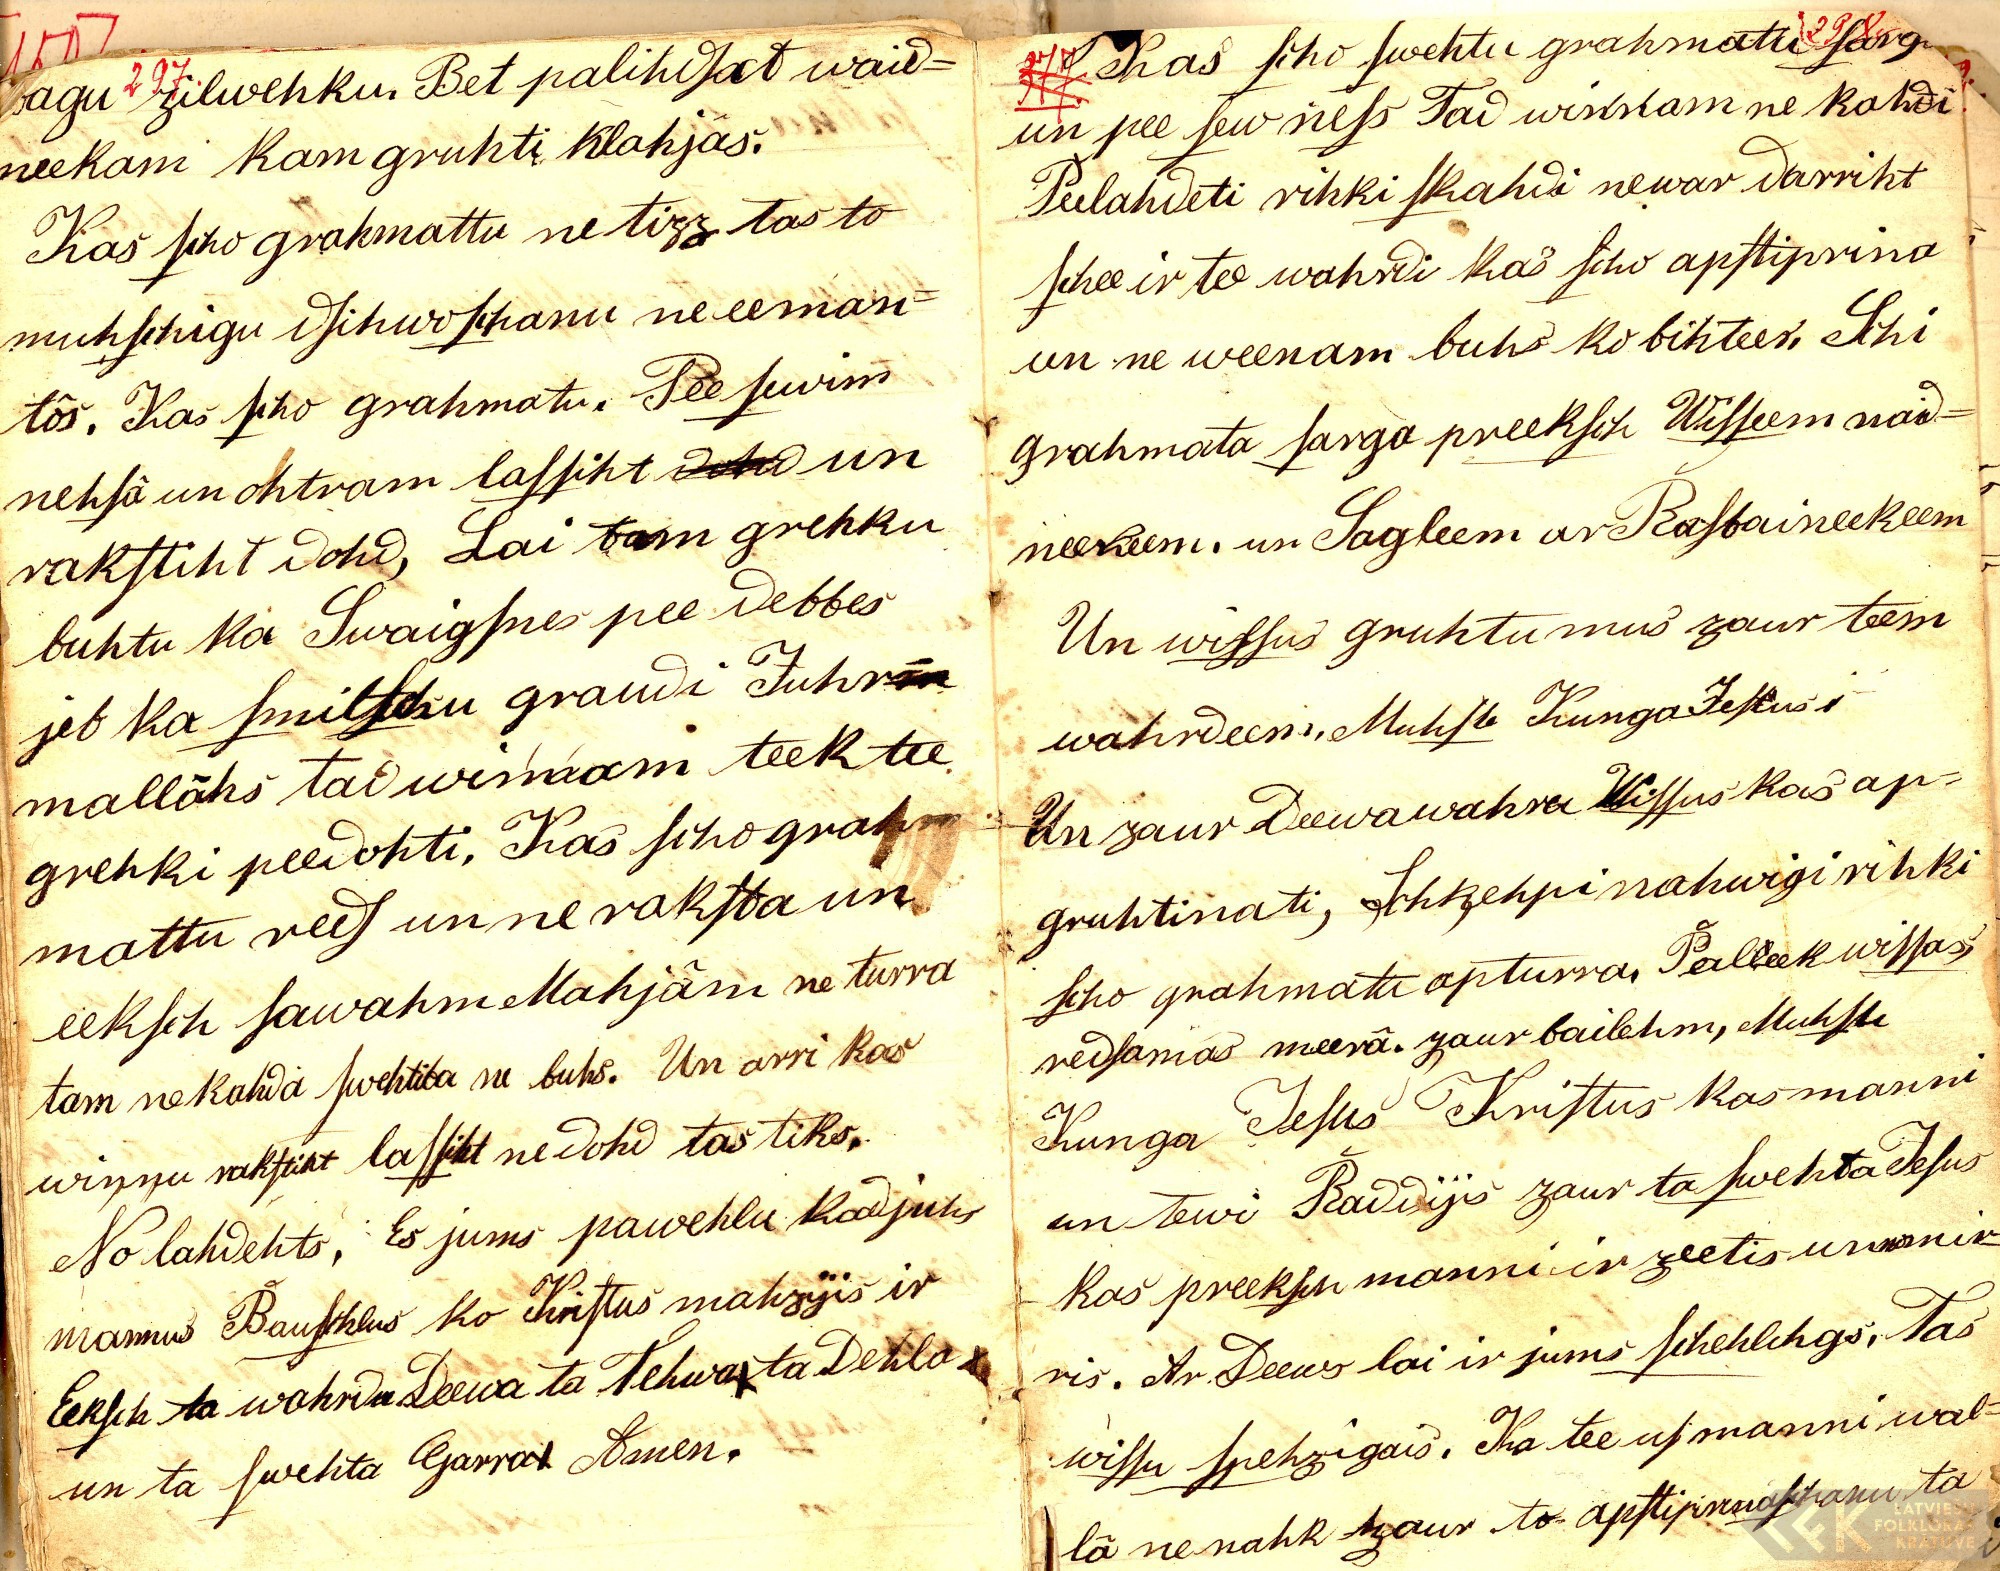 297.
bagu zilwehku. Bet palihdsat waid=
neekam kam gruhti klahjās.
Kas scho grahmattu ne tizz tas to
muhschigu dsihwoschanu ne eeman=
tôs. Kas scho grahmatu. Pee sewim
nehsâ un ohtram lassiht un
rakstiht dohd, Lai tam grehku
buhtu ka Swaigsnes pee debbes
jeb ka smilschu graudi Juhr
mallâhs tad winnam teek tee
grehki peedohti. Kas scho grah
mattu reds un ne raksta un
eeksch sawahm Mahjâm ne turra
tam nekahda swehtiba ne buhs. Un arri kas
winnu rakstiht lassiht ne dohd tas tiks.
No lahdehts, Es jums pawehlu kad juhs
mannus Bauschlus ko Kristus mahzijis ir
Eeksch ta wahrda Deewa ta Tehwa x ta Dehla x
un ta swehta Garra x Amen.
298.
277. Kas scho swehtu grahmatu sarg
un pee sew ness Tad winnam ne kahdi
Peelahdeti rihki skahdi newar darriht
schee ir tee wahrdi kas scho apstiprina
un ne weenam buhs ko bihtees. Schi
grahmata sarga preeksch Wisseem naid=
neekeem. un Sagleem ar Rasbaineekeem
Un wissus gruhtumus zaur teem
wahrdeem. Muhsu Kunga Jesus i
Un zaur Deewa wahra Wissus kas ap=
gruhtinati, Schkehpi nahwigi rihki
scho grahmatu apturra. Palleek wissas
redsamas meerâ. zaur bailehm, Muhsu
Kunga Jesus Kristus kas manni
un tewi Raddijs zaur ta swehta Jesus
kas preeksch manni ir zeetis un mir=
ris. Ar Deews lai ir jums schehlehgs. Tas
wissu spehzigais. Ka tee us manni wal=
lâ ne nahk zaur to apstiprinaschanu ta
LATVIEŠU
FOLKLORAS
KRĀTUVE